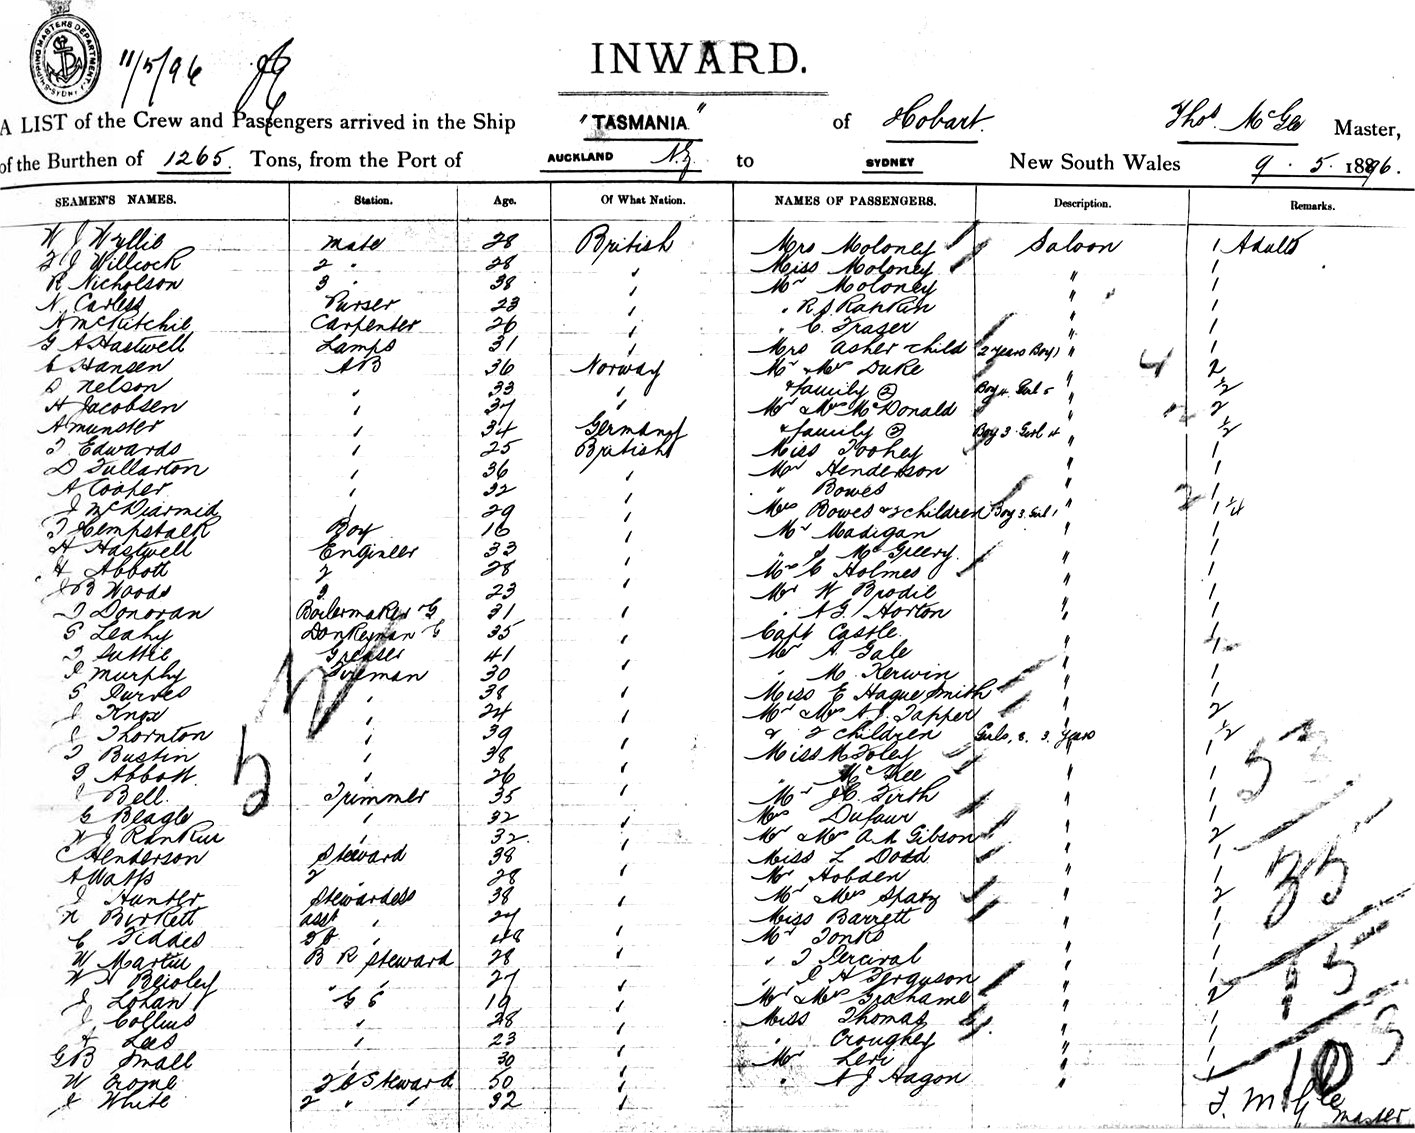 SHIPPING MASTERS DEPARTMENT SYDNEY
11/5/96
INWARD.
A LIST of the Crew and Passengers arrived in the Ship "TASMANIA" of Hobart. Thos. McGee Master,
of the Burthen of 1265 Tons, from the Port of AUCKLAND N.Z. to SYDNEY New South Wales 9 . 5 . 1896.
SEAMEN'S NAMES. Station. Age. Of What Nation. NAMES OF PASSENGERS. Description. Remarks.
W J Wyllie Mate 28 British Mrs Moloney Saloon 1 Adult
F J Willcock 2 " 28 " Miss Moloney " 1
R Nicholson 3 " 38 " Mr Moloney " 1
N Carless Purser 23 " " R J Rankin " 1
A McKitchie Carpenter 26 " " C. Fraser " 1
G A Hastwell Lamps 31 " Mrs Asher + child 2 years Boy " 1
C Hansen AB 36 Norway Mr & Mrs Duke " 2
D Nelson " 33 " & family (2) Boy 4 Girl 5 " 1/2
H Jacobsen " 37 " Mr & Mrs McDonald " 2
A Munster " 34 Germany & family (2) Boy 3 Girl 4 " 1/2
T Edwards " 25 British Miss Toohey " 1
D Fullarton " 36 " Mr Henderson " 1
A Cooper " 32 " " Bowes " 1
J McDiarmid " 29 " Mrs Bowes & 2 children Boy 3 Girl 1 " 1 1/4
T Hempstalk Boy 16 " Mr Madigan " 1
H Hastwell Engineer 33 " " J McGreevy " 1
H Abbott 2 28 " Mrs C Holmes " 1
J B Woods 3 23 " Mr W Brodie " 1
T Donovan Boilermaker & G 31 " " A G Horton " 1
G Leahy Donkeyman & G 35 " Capt Castle " 1
T Suttie Greaser 41 " Mr A Gale " 1
J Murphy Fireman 30 " " M. Kerwin " 1
G Purves " 38 " Miss E Hague Smith " 1
J Knox " 24 " Mr & Mrs A J Tapper " 2
J Thornton " 39 " & 2 children Girls, 8. 3. years 1/2
T Bustin " 38 " Miss M Foley " 1
J Abbott " 26 " " McKee " 1
J Bell Trimmer 35 " Mr J C Firth " 1
G Beagle " 32 " Mrs Dufaur " 1
W J Rankin " 32 " Mr & Mrs A A Gibson " 2
C Henderson Steward 38 " Miss L Dodd " 1
A Watts 2 " 28 " Mr Hobden " 1
J Hunter Stewardess 38 " Mr & Mrs Sparz " 2
N Birkett asst " 27 " Miss Barrett " 1
C Fiddes " 48 " Mr Tonks " 1
W Martin B R Steward 28 " " T Percival " 1
W H Beisley " " 27 " " J H Ferguson " 1
J Lohan G S 19 " Mr & Mrs Grahame " 2
J Collins " 28 " Miss Thomas " 1
Lees " 23 " " Croughey " 1
G B Small " 30 " Mr Levi " 1
W Crome 2 C Steward 50 " " A J Hagon " 1
J White 2 " " 32 "
53
35
15
3
10
T. McGee
Master